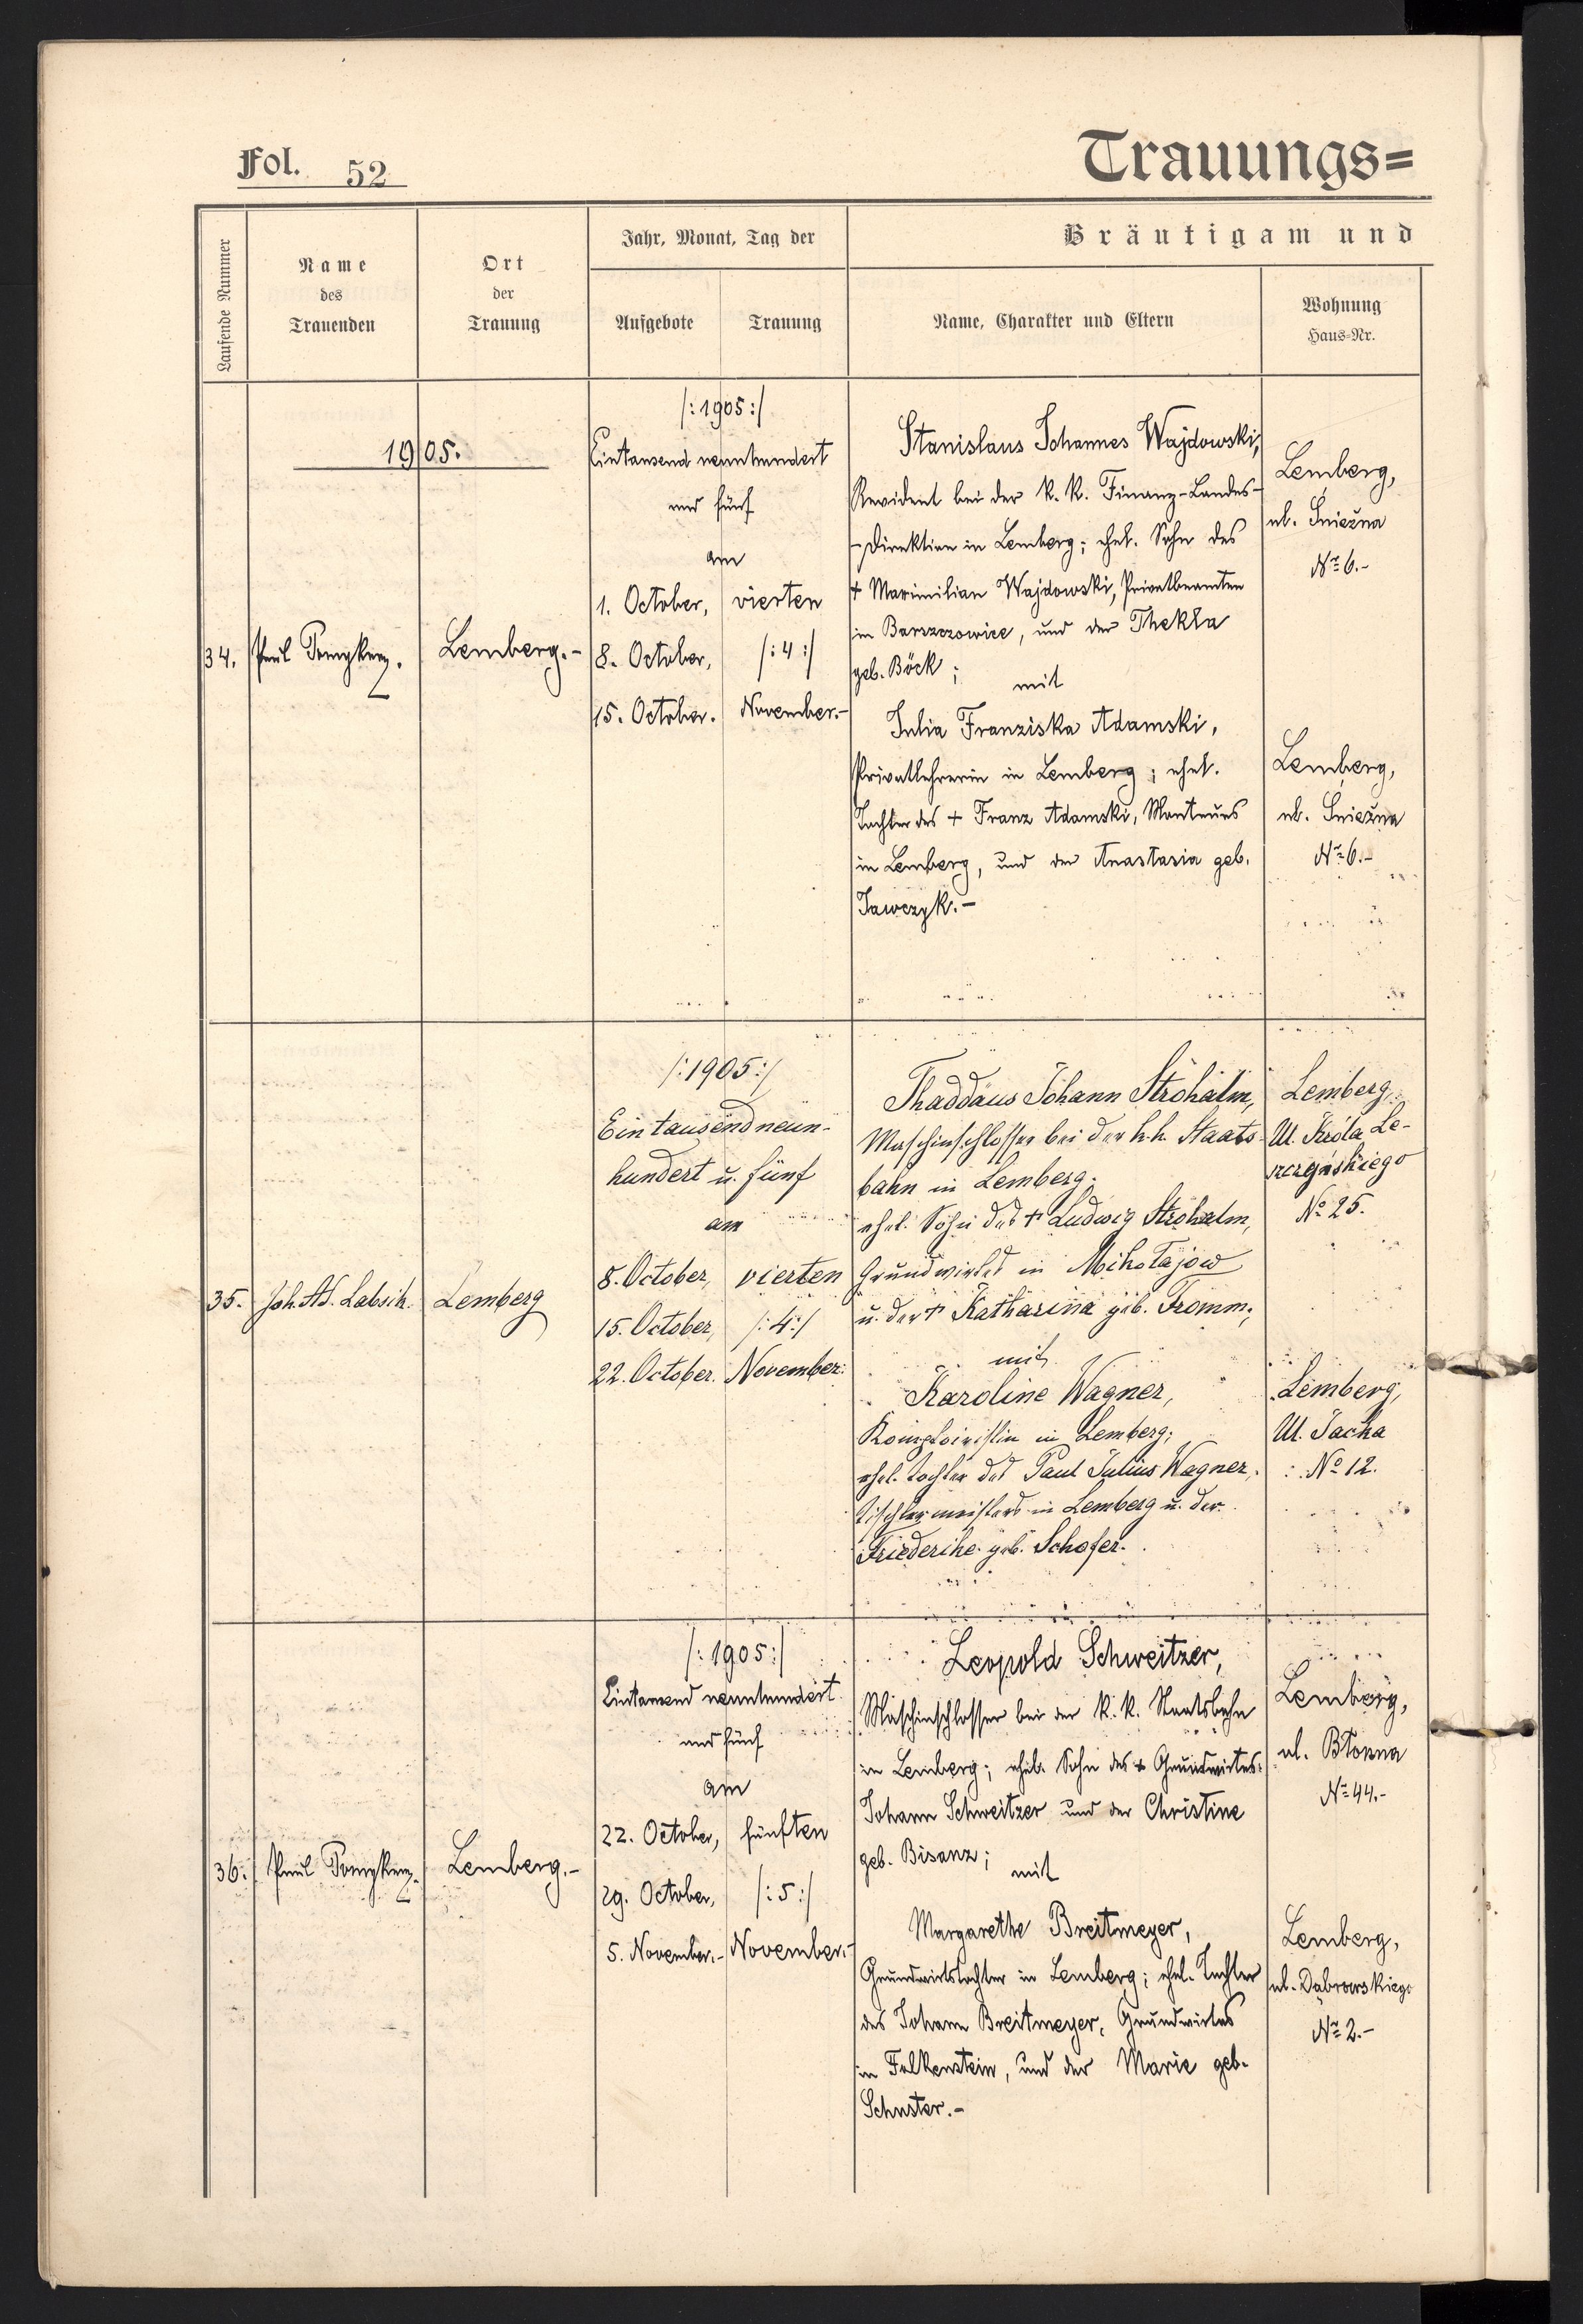 Fol. 52
Trauungs=
Laufende Nummer
Name
des
Trauenden
Ort
der
Trauung
Jahr, Monat, Tag der
Aufgebote
Trauung
Bräutigam und
Name, Charakter und Eltern
Wohnung
Haus=Nr.
1905.
34.
Paul
Lemberg.-
/:1905:/
Eintausend neunhundert
und fünf
am
1. October,
8. October,
15. October.
vierten
/:4:/
November.-
Stanislaus Johannes Wajdowski,
Revident bei der k. k. Finanz-Landes-
-Direktion in Lemberg; ehel. Sohn des
+ Maximilian Wajdowski, Privatbeamten
in Barszczowice, und der Thekla
geb. Böck;
mit
Julia Franziska Adamski,
Privatlehrerin in Lemberg; ehel.
Tochter des + Franz Adamski, Monteurs
in Lemberg, und der Anastasia geb.
Jawczyk.-
Lemberg,
ul. Śnieżna
No 6.-
Lemberg,
ul. Śnieżna
No 6.-
35.
Joh. Labsik.
Lemberg
/:1905:/
Eintausendneun-
hundert u. fünf
am
8. October,
15. October,
22. October.
vierten
/:4:/
November.
Thaddäus Johann Strohalm,
Maschinschlosser bei der k.k. Staats-
bahn in Lemberg;
ehel. Sohn des + Ludwig Strohalm,
Grundwirtes in Mikołajow
u. der + Katharina geb. Fromm;
mit
Karoline Wagner,
Komptoiristin in Lemberg;
ehel. Tochter des Paul Julius Wagner,
Tischlermeisters in Lemberg u. der
Friederike geb. Schofer.
Lemberg,
Ul. Króla Le-
szczyńskiego
No 25.
Lemberg,
Ul. Jacka
No 12.
36.
Paul
Lemberg.-
/:1905:/
Eintausend neunhundert
und fünf
am
22. October,
29. October,
5. November.-
fünften
/:5:/
November.-
Leopold Schweitzer,
Maschinschlosser bei der k. k. Staatsbahn
in Lemberg; ehel. Sohn des + Grundwirtes
Johann Schweitzer und der Christine
geb. Bisanz;
mit
Margarethe Breitmeyer,
Grundwirtstochter in Lemberg; ehel. Tochter
des Johann Breitmeyer, Grundwirtes
in Falkenstein, und der Marie geb.
Schuster.-
Lemberg,
ul. Błonna
No 44.-
Lemberg,
ul. Dąbrowskiego
No 2.-